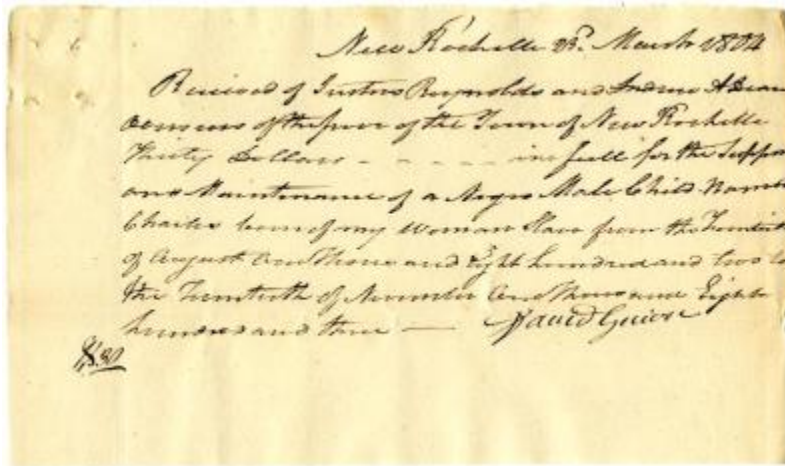 New Rochelle 23d. March 1804
Received of Justus Reynolds and Andrew A Dean
overseers of the poor of the Town of New Rochelle
Thirty Dollars - - - - - in full for the Suppo
and Maintenance of a Negro Male Child Name
Charles born of my Woman Slave from the Twentieth
of August One Thous and Eight hundred and two to
the Twentieth of November One Thous and Eight
hundred and three —
David Guion